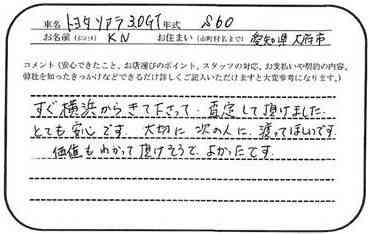 車名 トヨタ ソアラ 3.0GT 年式 S60
お名前(イニシャル) KN お住まい(市町村名まで) 愛知県大府市
コメント(安心できたこと、お店選びのポイント、スタッフの対応、お支払いや契約の内容、
弊社を知ったきっかけなどできるだけ詳しくご記入いただけますと大変参考になります。)
すぐ横浜からきて下さって、査定して頂けました。
とても安心です。大切に次の人に、渡ってほしいです。
価値もわかって頂けそうで、よかったです。